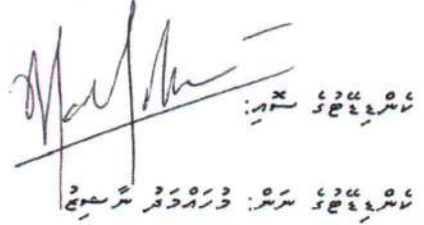 ކެންޑިޑޭޓުގެ ސޮއި:
ކެންޑިޑޭޓުގެ ނަން: މުހައްމަދު ނާޝިޒު